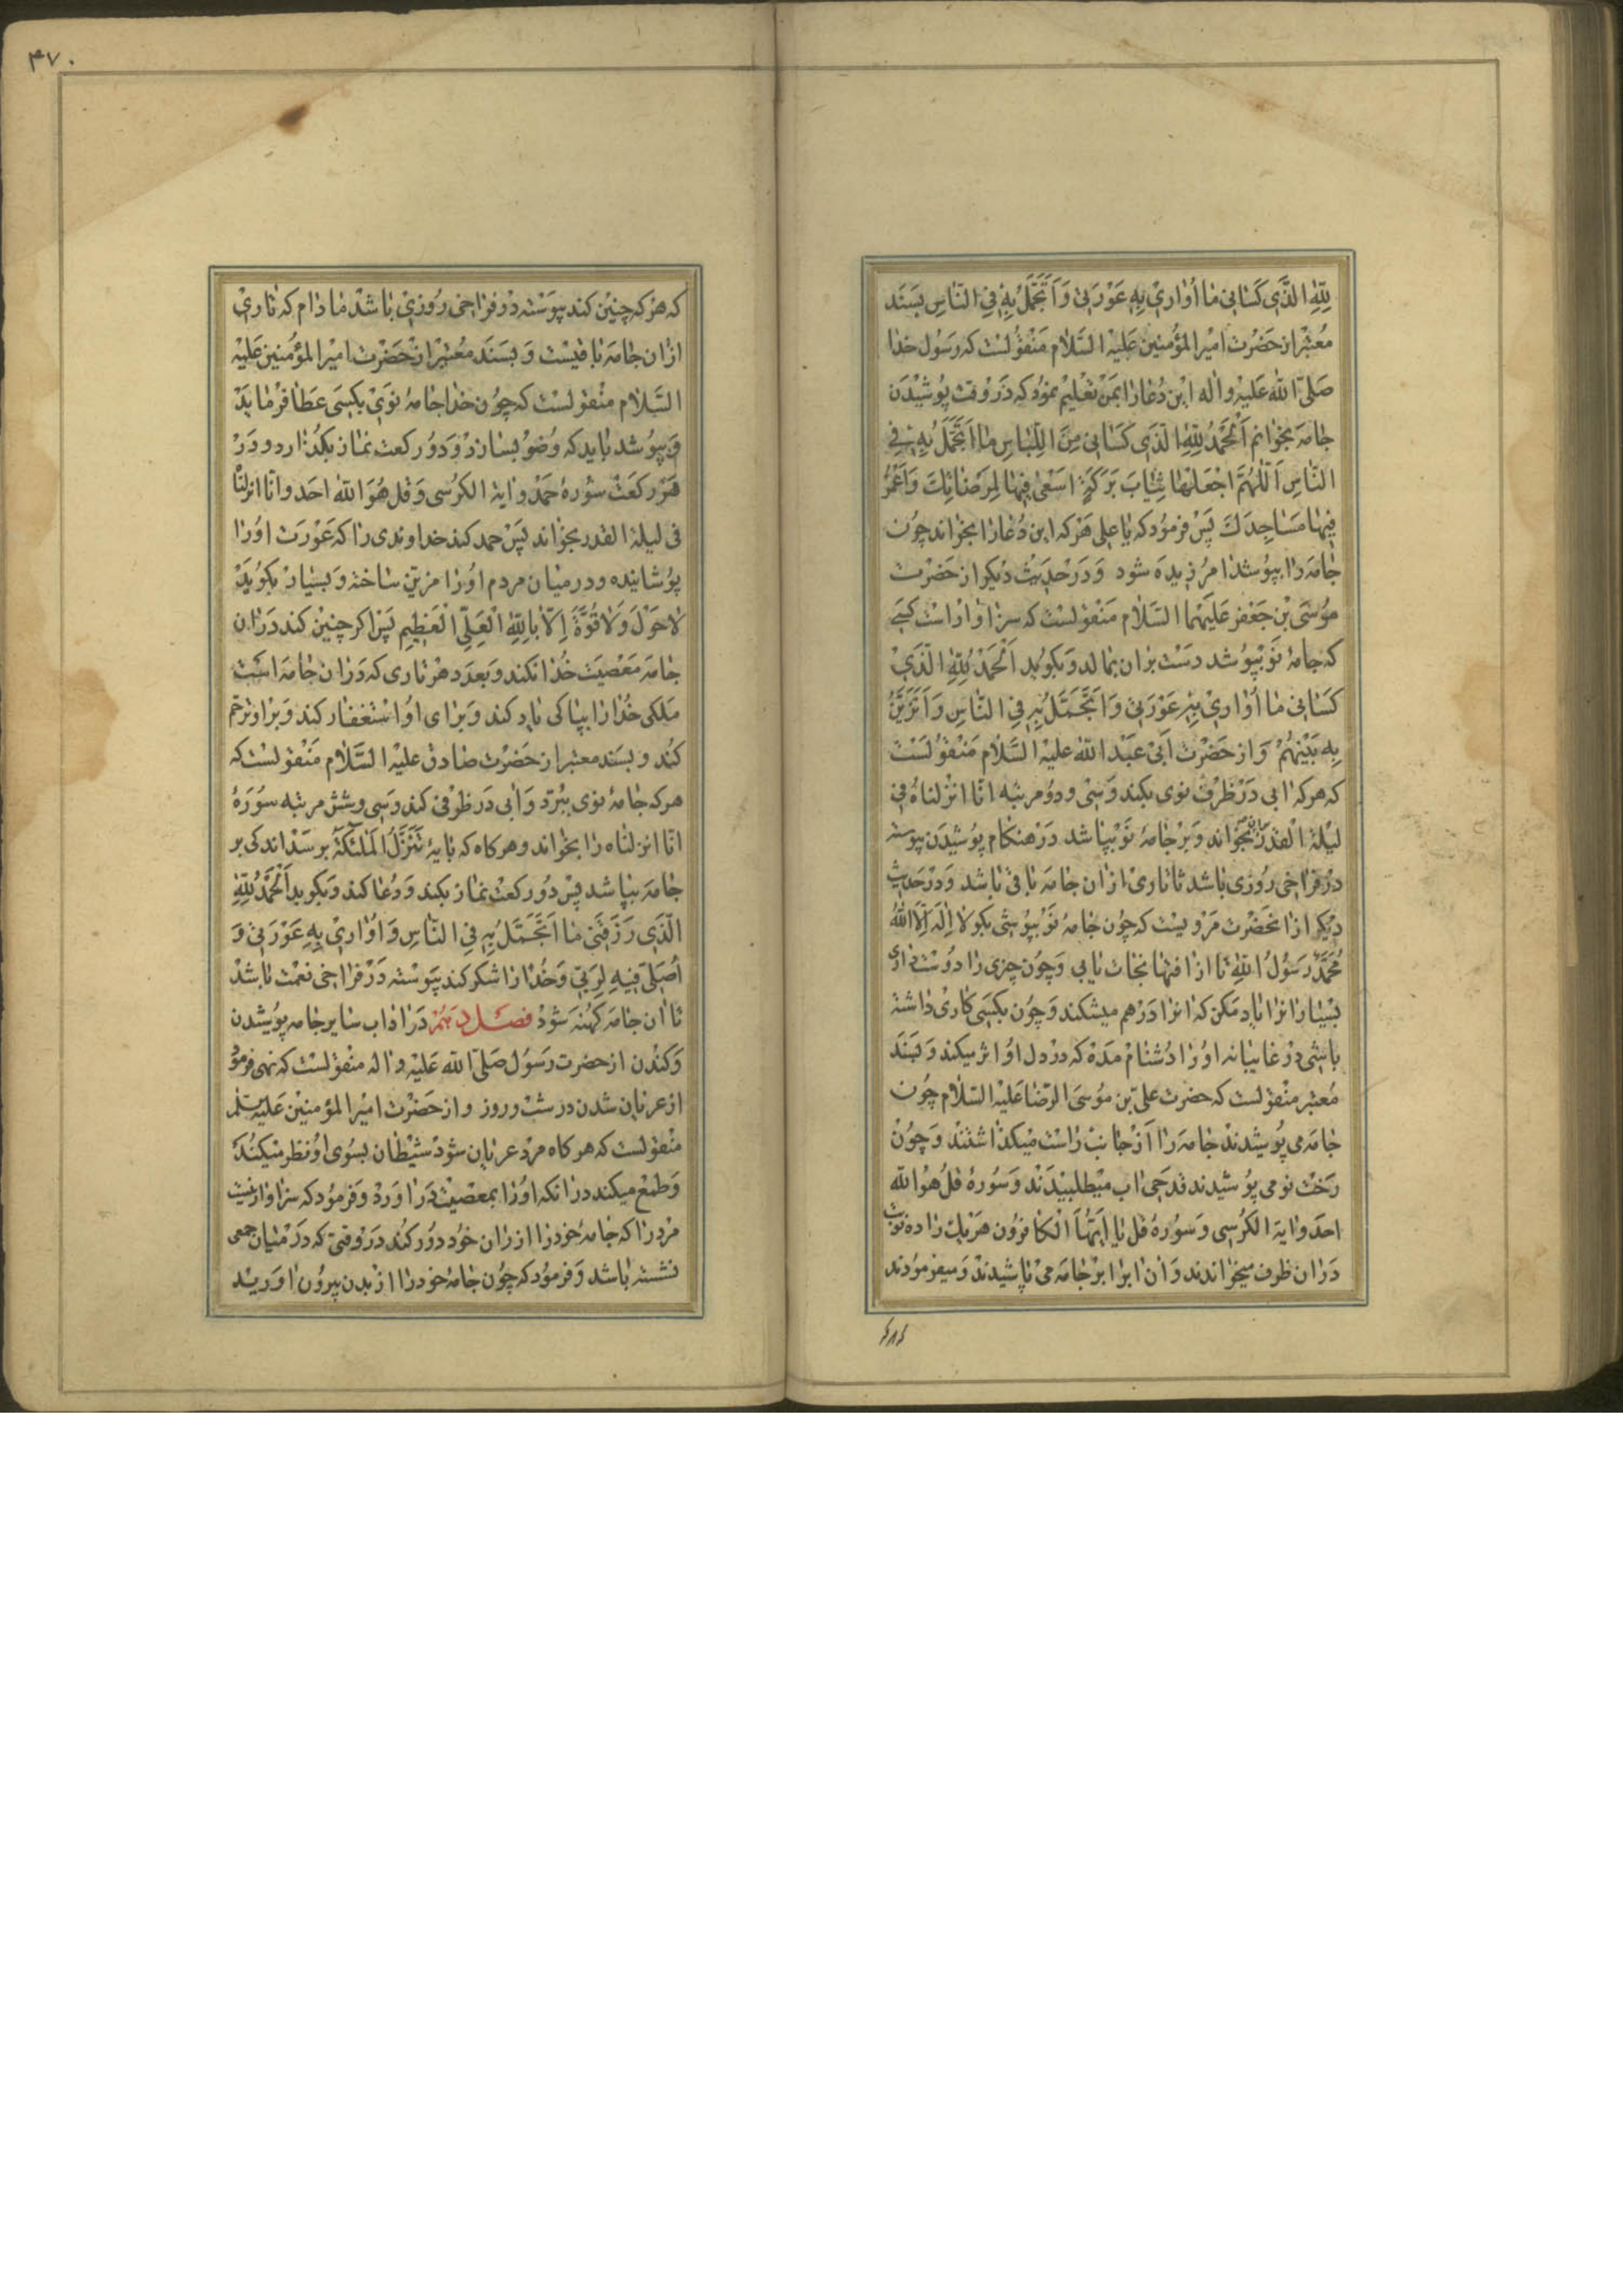 لِلّٰهِ الَّذی کَسٰانی مٰا اُوٰاری بِهِ عَوْرَتی وَ اَتَجَمَّلُ بِهِ فِی النّاسِ بسَنَد
مُعتبر از حَضْرت امیر المؤمنین عَلَیْه السَّلام مَنْقولست که رَسُول خدا
صَلّی اللّٰه عَلیْه واٰله این دُعا را بمَن تَعْلیم نمُود که دَر وقت پوُشیدَن
جامَه بخوانم اَلْحَمْدُ لِلّٰهِ الَّذی کَسٰانی مِنَ اللِّبٰاسِ مٰا اَتَجَمَّلُ بِهِ فِی
النّاسِ اَللّٰهُمَّ اجْعَلْهٰا ثِیٰابَ بَرَکَةٍ اَسْعٰی فِیهٰا لِمَرضٰاتِکَ وَ اَعْمُرُ
فِیهٰا مَسٰاجِدَکَ پَس فرموُد که یا علی هَرکه این دُعا را بخواند چون
جامَه را بپوُشد امرزیده شود وَ دَر حَدیث دیکر از حَضرت
موُسَی بْن جَعْفر عَلَیهما السَّلام مَنْقولست که سزاوار است کسی
که جامهٔ نَو بپوُشد دست بران بمالد و بکوید اَلْحَمْدُ لِلّٰهِ الَّذی
کَسٰانی مٰا اُوٰاری بِهِ عَوْرَتی وَ اَتَجَمَّلُ بِهِ فِی النّاسِ وَ اَتَزَیَّنُ
بِه بَیْنَهُمْ وَ از حَضْرت اَبی عَبْد اللّٰه علیْه السَّلام مَنْقولَست
که هرکه ابی دَر ظرف نوی بکند وَ سی و دو مرتبه انّا انزلناهُ فی
لیْلة الْقدر بخواند وَ بر جامهٔ نَو بپاشد دَر هنکام پوُشیدَن پیوسته
در فراخی روُزی باشد تا تاری از ان جامَه باقی باشد وَ در حَدیث
دیکر از انحَضْرت مَرویست که چون جامهٔ نَو بپوُشی بکو لا اِلٰهَ اِلَّا اللّٰهُ
مُحَمَّدٌ رَسُولُ اللّٰهِ تا از افتها نجات یابی وَ چون چیزی را دوُست داری
بسْیار انرا یاد مَکن که انرا دَرهم میشکند وَ چوُن بکسَی کاری داشته
باشی در غایبانه اوُ را دُشنام مَدَه که دردل اوُ اثر میکند و بسَند
مُعتبر منْقولست که حضرت علیّ بن موُسَی الرّضا عَلَیْه السّلام چون
جامَه می پوُشیدند جامَه را از جانب راست میکذاشتند وَ چوُن
رَخْت نو می پوُشیدند قدَحی اب میْطلبیدَند وَ سوُرهٔ قُلْ هُوَ اللّٰه
احَد وایة الکرسی وَ سوُرهٔ قل یا اَیُّهَا الْکافروُن هَر یک را ده نوُبت
دَران ظرف میخواندند وَ ان ابرا بر جامَه می پاشیدند وَ میفرموُدند
که هر که چنین کند پیوسته در فراخی روُزی باشد مادام که تاری
ازان جامَه باقیست وَ بسَند معُتبر از حَضرت امیر المؤمنین عَلَیْه
السَّلام منْقولست که چوُن خدا جامهٔ نوی بکسی عَطا فرماید
وَ بپوُشد باید که وُضو بسازد وَ دوُرکعت نماز بکذارد و دَر
هَر رکعَت سوُرهٔ حَمْد وایة الکرُسی وَ قل هُوَ اللّٰه احَد و انّا انزلنا
فی لیلة القدر بخواند پس حمد کند خداوندی را که عَوْرَت اوُرا
پوُشانیده ودرمیان مردم اوُرا مزیّن ساخته وَ بسیار بکوید
لٰا حَوْلَ وَ لٰا قُوَّةَ اِلّٰا بِاللّٰهِ الْعَلِیِّ الْعَظیمِ پس اکر چنین کند دَران
جامَه مَعْصیَت خُدا نکند وَ بعَدد هر تاری که دَران جامَه است
مَلَکی خُدا را بپاکی یاد کند وَ برای اوُ استغفار کند وَ براو ترحّم
کُند و بسَند معتبر از حَضْرت صادق علیْه السَّلام مَنْقولسْت که
هرکه جامهٔ نوی ببُرّد وَ ابی دَر ظرفی کند وَ سی وشش مرتبه سوُرَهٔ
انّا انزلناه را بخواند وهر کاه که بایهٔ تَنَزَّلُ الْمَلٰئِکَةُ برسَد اندکی بر
جامَه بپاشد پس دوُ رکعت نماز بکند وَ دُعا کند وَ بکوید اَلْحَمْدُ لِلّٰهِ
الَّذی رَزَقَنی مٰا اَتَجَمَّلُ بِهِ فِی النّاسِ وَ اُوٰاری بِهِ عَوْرَتی وَ
اُصَلّی فِیهِ لِرَبّی وَ خُدا را شکر کند پیَوسْته دَر فراخی نعمْت باشد
تا ان جامَه کُهنه شوَد فصل دهم در اداب سایر جامه پوُشیدن
وَ کنْدن از حضرت رَسوُل صَلّی اللّٰه عَلَیْه واله منقولست که نهی فرموُد
از عریان شدن درشب وروز و از حَضْرت امیر المؤمنین عَلَیْه السّلم
منْقولست که هر کاه مرد عریان شوَد شیْطان بسوُی اوُ نظر میکنُد
وَ طمع میکند درانکه اوُرا بمعصیت دَراوَرد وَ فرموُد که سزاوار نیست
مرد را که جامهٔ خود را از ران خوُد دوُر کُند دَر وقتی که دَرمیان جمعی
نشسته باشد وَ فرموُد که چوُن جامهٔ خود را از بدن بیروُن اوَرید